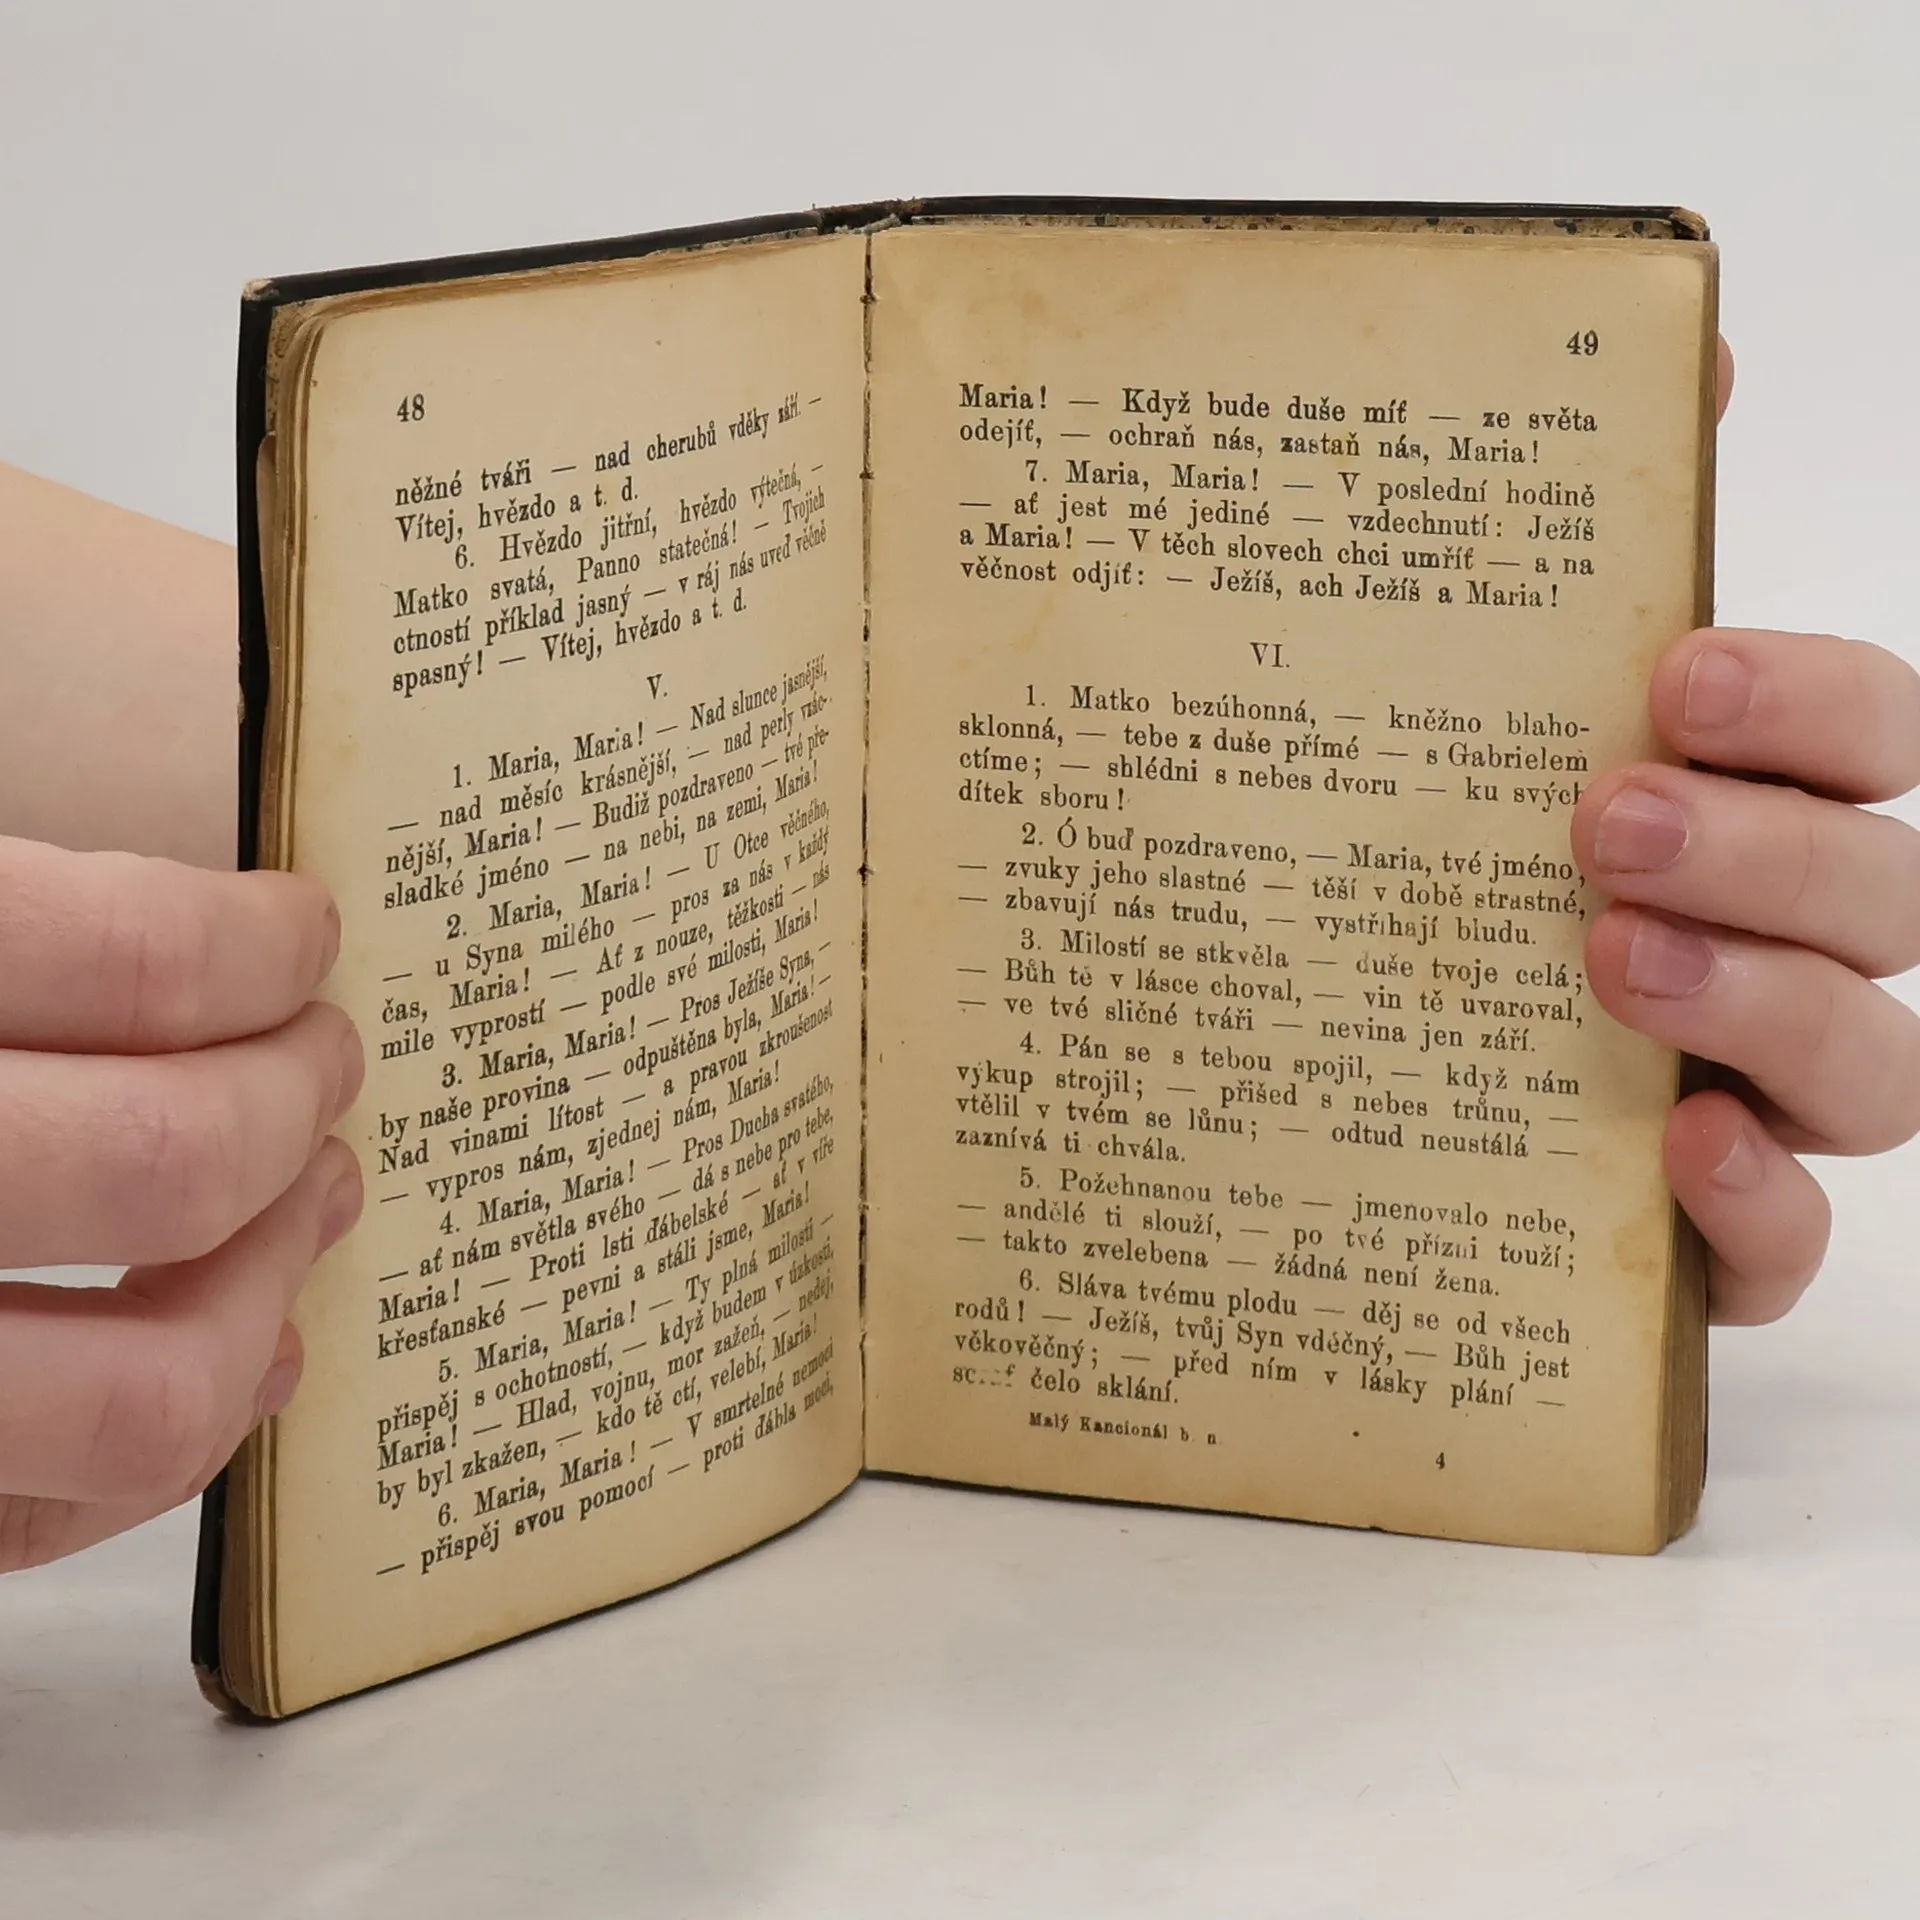 48
něžné tváři — nad cherubů vděky září. —
Vítej, hvězdo a t. d.
6. Hvězdo jitřní, hvězdo výtečná, —
Matko svatá, Panno statečná! — Tvojich
ctností příklad jasný — v ráj nás uveď věčně
spasný! — Vítej, hvězdo a t. d.
V.
1. Maria, Maria! — Nad slunce jasnější,
— nad měsíc krásnější, — nad perly vzác-
nější, Maria! — Budiž pozdraveno — tvé pře-
sladké jméno — na nebi, na zemi, Maria!
2. Maria, Maria! — U Otce věčného,
— u Syna milého — pros za nás v každý
čas, Maria! — Ať z nouze, těžkosti — nás
mile vyprostí — podle své milosti, Maria!
3. Maria, Maria! — Pros Ježíše Syna, —
by naše provina — odpuštěna byla, Maria! —
Nad vinami lítost — a pravou zkroušenost
— vypros nám, zjednej nám, Maria!
4. Maria, Maria! — Pros Ducha svatého,
— ať nám světla svého — dá s nebe pro tebe,
Maria! — Proti lsti ďábelské — ať v víře
křesťanské — pevni a stáli jsme, Maria!
5. Maria, Maria! — Ty plná milosti —
přispěj s ochotností, — když budem v úzkosti,
Maria! — Hlad, vojnu, mor zažeň, — nedej,
by byl zkažen, — kdo tě ctí, velebí, Maria!
6. Maria, Maria! — V smrtelné nemoci
— přispěj svou pomocí — proti ďábla moci,
49
Maria! — Když bude duše míť — ze světa
odejíť, — ochraň nás, zastaň nás, Maria!
7. Maria, Maria! — V poslední hodině
— ať jest mé jediné — vzdechnutí: Ježíš
a Maria! — V těch slovech chci umříť — a na
věčnost odjíť: — Ježíš, ach Ježíš a Maria!
VI.
1. Matko bezúhonná, — kněžno blaho-
sklonná, — tebe z duše přímé — s Gabrielem
ctíme; — shlédni s nebes dvoru — ku svých
dítek sboru!
2. Ó buď pozdraveno, — Maria, tvé jméno,
— zvuky jeho slastné — těší v době strastné,
— zbavují nás trudu, — vystříhají bludu.
3. Milostí se stkvěla — duše tvoje celá;
— Bůh tě v lásce choval, — vin tě uvaroval,
— ve tvé sličné tváři — nevina jen září.
4. Pán se s tebou spojil, — když nám
výkup strojil; — přišed s nebes trůnu, —
vtělil v tvém se lůnu; — odtud neustálá —
zaznívá ti chvála.
5. Požehnanou tebe — jmenovalo nebe,
— andělé ti slouží, — po tvé přízni touží;
— takto zvelebena — žádná není žena.
6. Sláva tvému plodu — děj se od všech
rodů! — Ježíš, tvůj Syn vděčný, — Bůh jest
věkověčný; — před ním v lásky plání —
čelo sklání.
Malý Kancionál b. n.
4